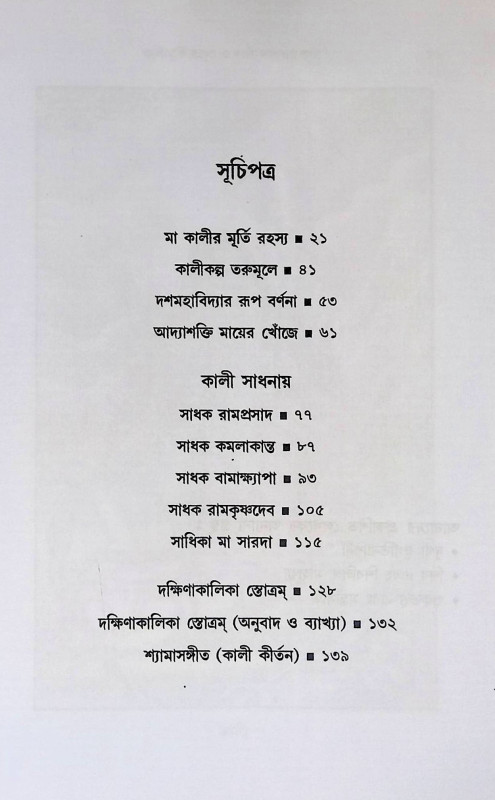 সূচিপত্র
মা কালীর মূর্তি রহস্য ■ ২১
কালীকল্প তরুমূলে ■ ৪১
দশমহাবিদ্যার রূপ বর্ণনা ■ ৫৩
আদ্যাশক্তি মায়ের খোঁজে ■ ৬১
কালী সাধনায়
সাধক রামপ্রসাদ ■ ৭৭
সাধক কমলাকান্ত ■ ৮৭
সাধক বামাক্ষ্যাপা ■ ৯৩
সাধক রামকৃষ্ণদেব ■ ১০৫
সাধিকা মা সারদা ■ ১১৫
দক্ষিণাকালিকা স্তোত্রম্ ■ ১২৮
দক্ষিণাকালিকা স্তোত্রম্ (অনুবাদ ও ব্যাখ্যা) ■ ১৩২
শ্যামাসঙ্গীত (কালী কীর্তন) ■ ১৩৯